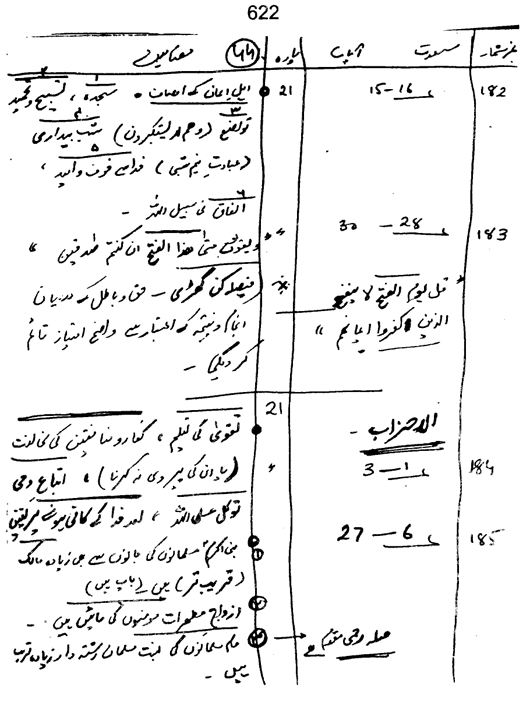 622
نمبر شمار سورت آیات پارہ (44) مضامین
182 15-16 21 اہلِ ایمان کے اوصاف ۔ ۱ سجدہ ، ۲ تسبیح و تحمید
۳ تواضع (وھم لا یستکبرون) ۴ شب بیداری
(عبادتِ نیم شبی) ۵ خدا سے خوف و امید ،
۶ انفاق فی سبیل اللہ ۔
183 28 - 30 " ویقولون متیٰ ھذا الفتح ان کنتم صٰدقین "
" قل یوم الفتح لا ینفع * (فیصلہ کن گھڑی ۔ حق و باطل کے درمیان
الذین کفروا ایمانھم " انجام و نتیجہ کے اعتبار سے واضح امتیاز قائم
کر دیگی) ۔
الاحزاب - 21 تقویٰ کی تعلیم ، کفار و منافقین کی مخالفت
184 1 - 3 " (یا ان کی پیروی نہ کرنا) ، اتباعِ وحی
توکل علی اللہ ، اور خدا کے کافی ہونے پر یقین
185 6 - 27 ① نبی اکرم مسلمانوں کی جانوں سے بھی زیادہ مالک
(قریب تر) ہیں (باپ ہیں)
② ازواج مطہرات مومنوں کی مائیں ہیں ۔
صلہ رحمی مقدم ہے ③ عام مسلمانوں کی نسبت مسلمان رشتہ دار زیادہ قریب
ہیں ۔